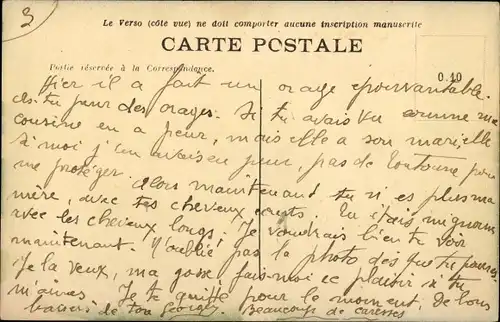 3
Le Verso (côté vue) ne doit comporter aucune inscription manuscrite
CARTE POSTALE
Partie réservée à la Correspondance.
0.40
Hier il a fait un orage épouvantable.
as tu peur des orages. Si tu avais vu comme ma
cousine en a peur, mais elle a son mari elle
si moi j'en avais eu peur, pas de pour
me protéger. Alors maintenant tu n'es plus ma
mère, avec tes cheveux courts. Tu étais mignonne
avec les cheveux longs. Je voudrais bien te voir
maintenant. N'oublie pas la photo dès que tu pourras.
Je la veux, ma gosse fais-moi ce plaisir si tu
m'aimes. Je te quitte pour le moment. De doux
baisers de ton Georges. Beaucoup de caresses